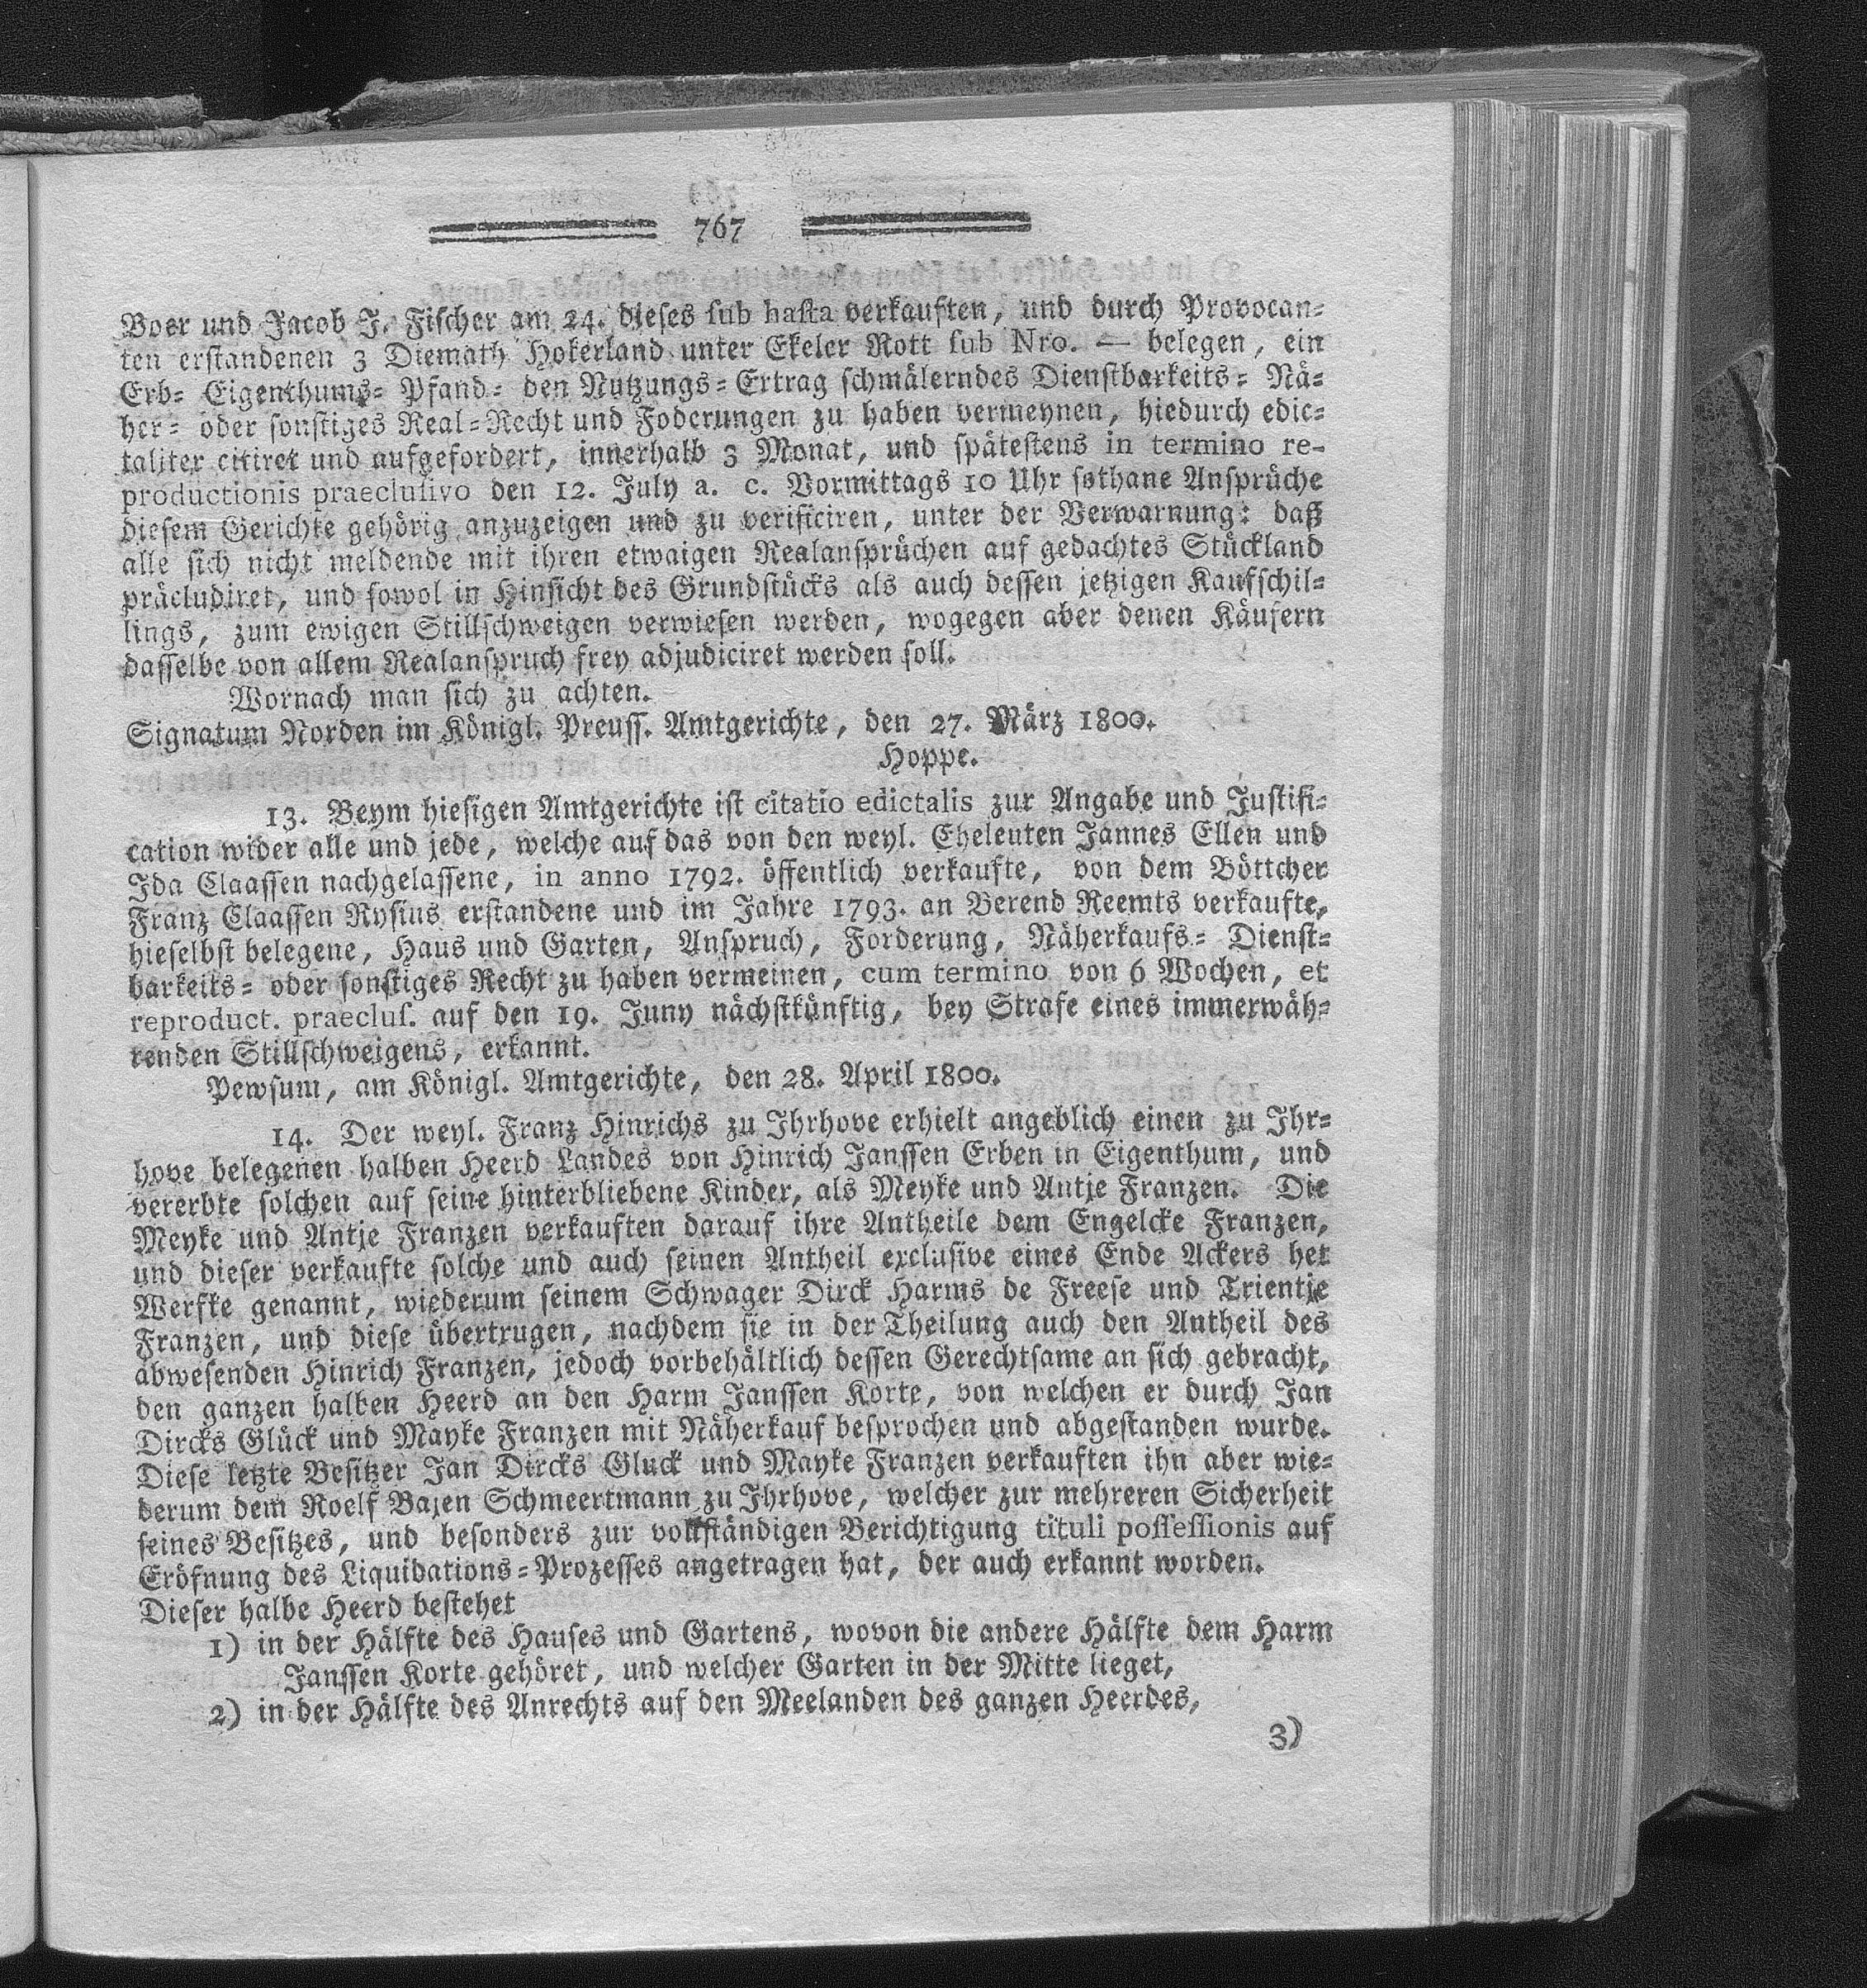 767
Boer und Jacob J. Fischer am 24. dieses sub hasta verkauften, und durch Provocan-
ten erstandenen 3 Diemath Hokerland unter Ekeler Rott sub Nro. — belegen, ein
Erb- Eigenthums- Pfand- den Nutzungs-Ertrag schmälerndes Dienstbarkeits- Nä-
her- oder sonstiges Real-Recht und Foderungen zu haben vermeynen, hiedurch edic-
taliter citiret und aufgefordert, innerhalb 3 Monat, und spätestens in termino re-
productionis praeclusivo den 12. July a. c. Vormittags 10 Uhr sothane Ansprüche
diesem Gerichte gehörig anzuzeigen und zu verificiren, unter der Verwarnung: daß
alle sich nicht meldende mit ihren etwaigen Realansprüchen auf gedachtes Stückland
präcludiret, und sowol in Hinsicht des Grundstücks als auch dessen jetzigen Kaufschil-
lings, zum ewigen Stillschweigen verwiesen werden, wogegen aber denen Käufern
dasselbe von allem Realanspruch frey adjudiciret werden soll.
Wornach man sich zu achten.
Signatum Norden im Königl. Preuss. Amtgerichte, den 27. März 1800.
Hoppe.
13. Beym hiesigen Amtgerichte ist citatio edictalis zur Angabe und Justifi-
cation wider alle und jede, welche auf das von den weyl. Eheleuten Jannes Ellen und
Ida Claassen nachgelassene, in anno 1792. öffentlich verkaufte, von dem Böttcher
Franz Claassen Rysius erstandene und im Jahre 1793. an Berend Reemts verkaufte,
hieselbst belegene, Haus und Garten, Anspruch, Forderung, Näherkaufs- Dienst-
barkeits- oder sonstiges Recht zu haben vermeinen, cum termino von 6 Wochen, et
reproduct. praeclus. auf den 19. Juny nächstkünftig, bey Strafe eines immerwäh-
renden Stillschweigens, erkannt.
Pewsum, am Königl. Amtgerichte, den 28. April 1800.
14. Der weyl. Franz Hinrichs zu Ihrhove erhielt angeblich einen zu Ihr-
hove belegenen halben Heerd Landes von Hinrich Janssen Erben in Eigenthum, und
vererbte solchen auf seine hinterbliebene Kinder, als Meyke und Antje Franzen. Die
Meyke und Antje Franzen verkauften darauf ihre Antheile dem Engelcke Franzen,
und dieser verkaufte solche und auch seinen Antheil exclusive eines Ende Ackers het
Werfke genannt, wiederum seinem Schwager Dirck Harms de Freese und Trientje
Franzen, und diese übertrugen, nachdem sie in der Theilung auch den Antheil des
abwesenden Hinrich Franzen, jedoch vorbehältlich dessen Gerechtsame an sich gebracht,
den ganzen halben Heerd an den Harm Janssen Korte, von welchen er durch Jan
Dircks Glück und Mayke Franzen mit Näherkauf besprochen und abgestanden wurde.
Diese letzte Besitzer Jan Dircks Gluck und Mayke Franzen verkauften ihn aber wie-
derum dem Roelf Bajen Schmeertmann zu Ihrhove, welcher zur mehreren Sicherheit
seines Besitzes, und besonders zur vollständigen Berichtigung tituli possessionis auf
Eröfnung des Liquidations-Prozesses angetragen hat, der auch erkannt worden.
Dieser halbe Heerd bestehet
1) in der Hälfte des Hauses und Gartens, wovon die andere Hälfte dem Harm
Janssen Korte gehöret, und welcher Garten in der Mitte lieget,
2) in der Hälfte des Anrechts auf den Meelanden des ganzen Heerdes,
3)